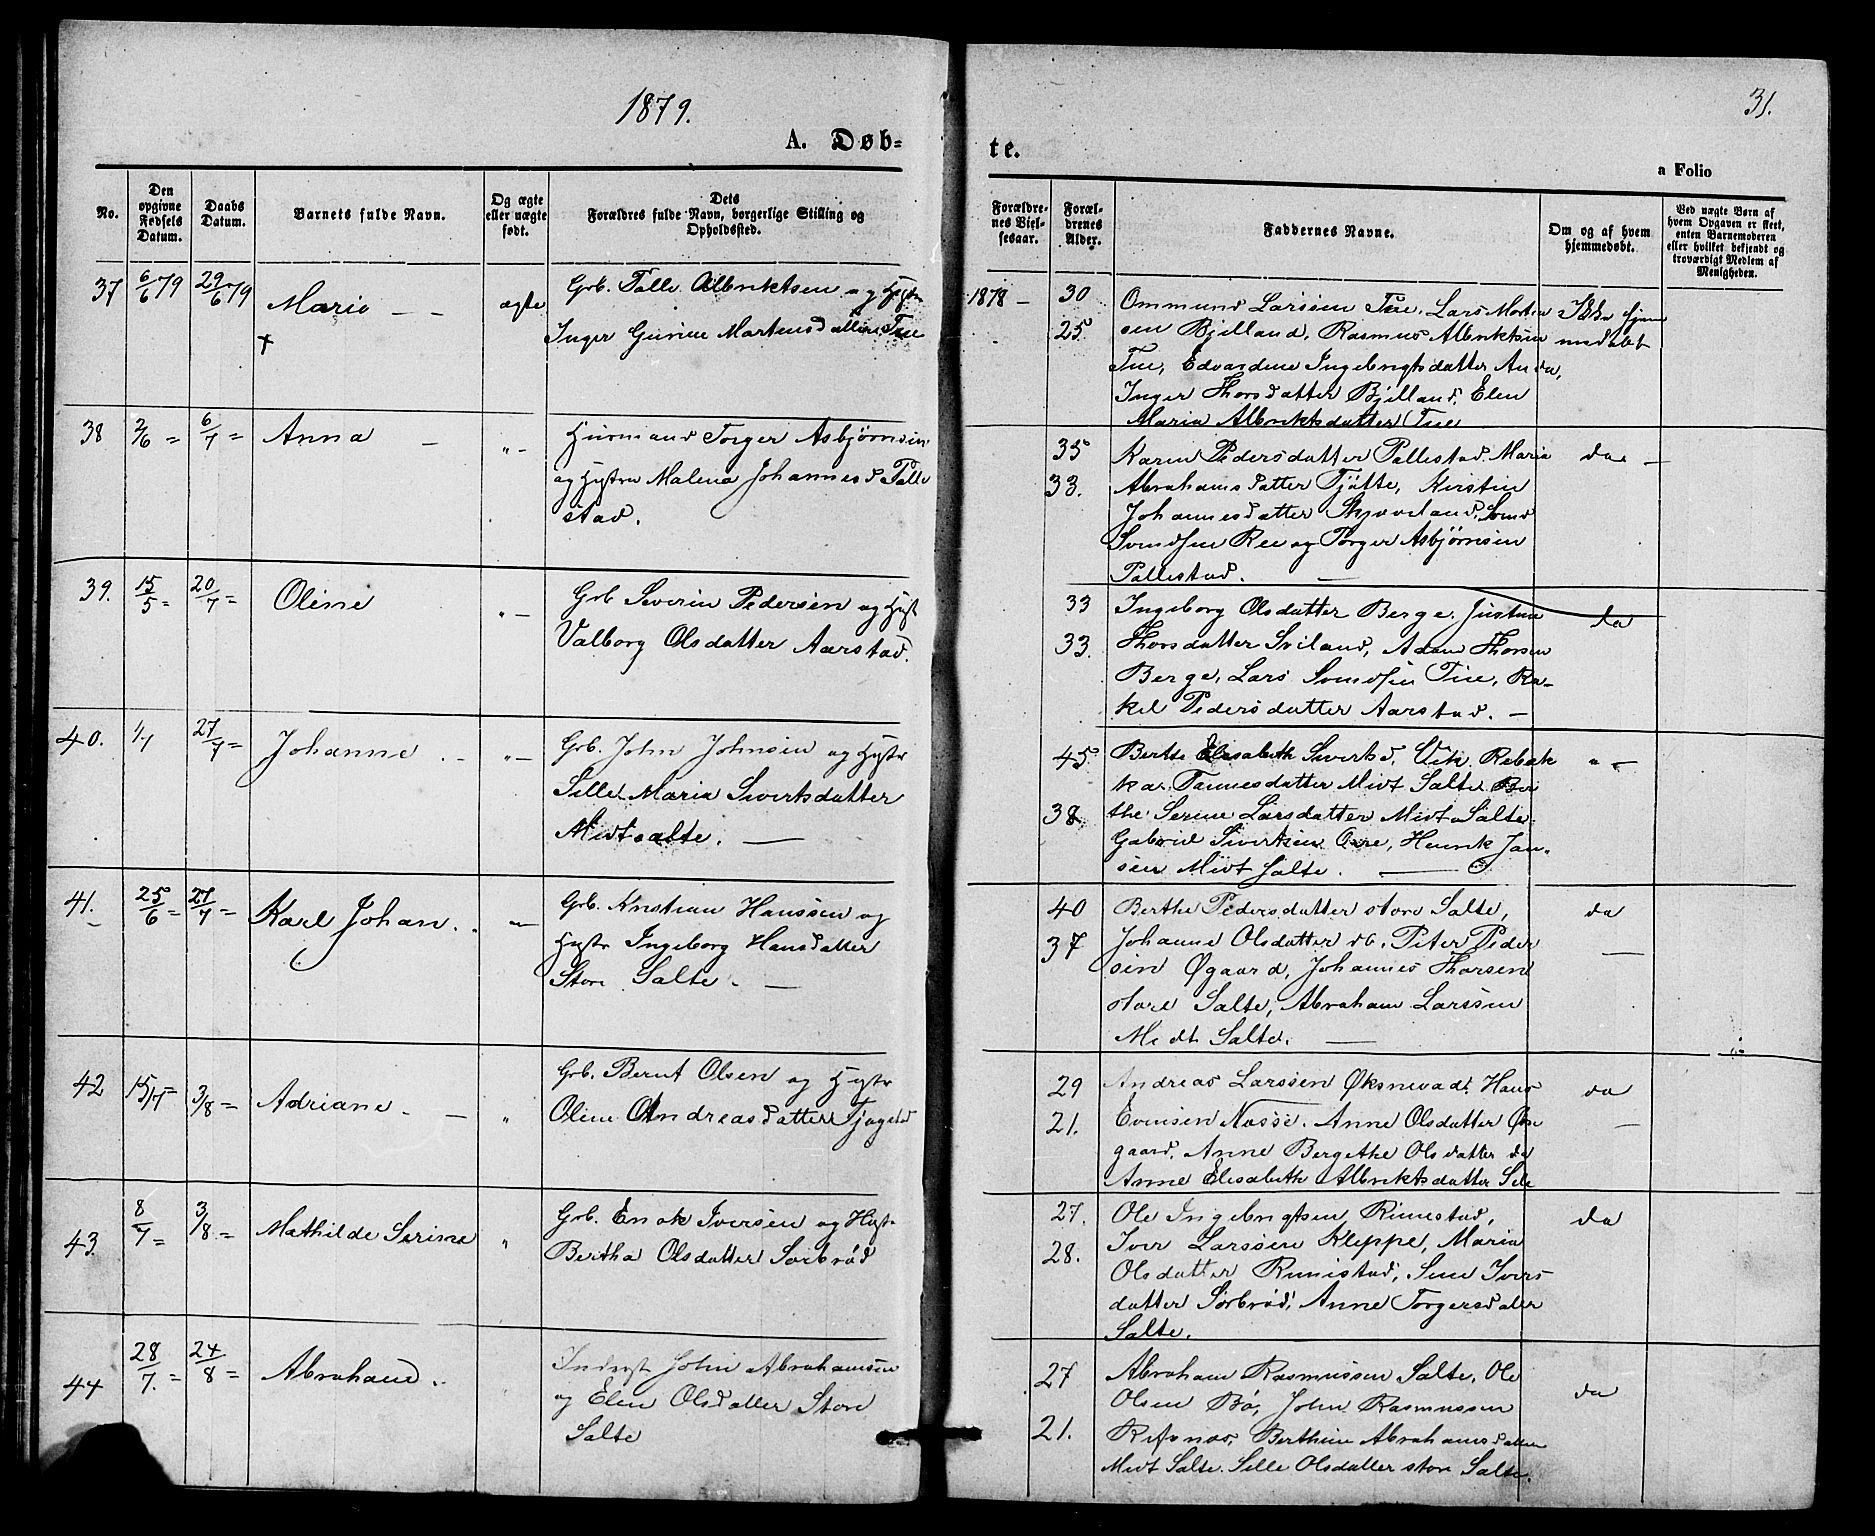 1879.
31.
A. Døb-
te.
a Folio
No.
Den opgivne Fødsels Datum.
Daabs Datum.
Barnets fulde Navn.
Og ægte eller uægte født.
Dets Forældres fulde Navn, borgerlige Stilling og Opholdssted.
Forældrenes Vielsesaar.
Forældrenes Alder.
Faddernes Navne.
Om og af hvem hjemmedøbt.
Ved uægte Børn af hvem Opgaven er skeet, enten Barnemoderen eller hvilket bekjendt og troværdigt Medlem af Menigheden.
37 6/6 79 29/6 79 Marie — — ægte
†
Grb. Tolle Albriktsen og Hustr
Inger Gurine Martensdatter Tue
1878 — 30
25
Ommund Larsen Tue, Lars Morten
sen Bjelland, Rasmus Albriktsen
Tue, Edvardine Ingebrigtsdatter Anda,
Inger Thorsdatter Bjelland, Elen
Maria Albriktsdatter Tue
Ikke hjem
medøbt
38 2/6 = 6/7 = Anna — „ —
Huusmand Torger Asbjørnsen
og Hustru Malena Johannesd Palle
stad.
35
33.
Karen Pedersdatter Pallestad, Maria
Abrahamsdatter Tjøtte, Kirstin
Johannesdatter Skjæveland, Svend
Svendsen Ree og Torger Asbjørnsen
Pallestad. —
da —
39. 15/5 = 20/7 = Oline „ —
Grb Severin Pedersen og Hust
Valborg Olsdatter Aarstad.
33
33.
Ingeborg Olsdatter Berge, Justine
Thorsdatter Sviland, Adam Thorsen
Berge, Lars Svendsen Tue, Ra-
kel Pedersdatter Aarstad. —
da
40. 1/7 27/7 = Johanne . — „ —
Grb. John Johnsen og Hustr
Sille Maria Sivertsdatter
Midtsalte. —
45
38
Berthe Elisabeth Sivertsd. Vik, Rebek
ka Tønnesdatter Midt Salte Ber
the Serine Larsdatter Midt Salte.
Gabriel Sivertsen Orre, Henrik Jan-
sen Midt Salte. —
„ —
41. 25/6 = 27/7 = Karl Johan. . „ —
Grb. Kristian Hanssen og
Hustr Ingeborg Hansdatter
Store Salte. —
40
37
Berthe Pedersdatter store Salte,
Johanne Olsdatter do. Peter Peder
sen Øgaard, Johannes Thorsen
store Salte, Abraham Larssen
Midt Salte. —
da
—
42. 15/7 = 3/8 = Adriane. — „
Grb. Bernt Olsen og Hustr
Oline Andreasdatter Tjøgestad
29
21.
Andreas Larssen Øksnevad. Hans
Evensen Næsse. Anne Olsdatter Øxne
gaard, Anne Bergethe Olsdatter do
Anne Elisabeth Albriktsdatter Sele
da
—
43. 8/7 = 3/8 = Mathilde Serine „
Grb. Enok Iversen og Hust.
Bertha Olsdatter Sørbrød
27.
28.
Ole Ingebrigtsen Rimestad,
Iver Larssen Kleppe, Maria
Olsdatter Rimestad, Sine Ivers-
datter Sørbrød, Anne Torgersdater
Salte.
da
44 28/7. = 24/8 = Abraham.
Inderst John Abrahamsen
og Elen Olsdatter Store
Salte
27
21.
Abraham Rasmussen Salte, Ole
Olsen Bø, John Rasmussen
Refsnæs, Berthine Abrahamsdatter
Midt Salte. Sille Olsdatter store Salte.
da